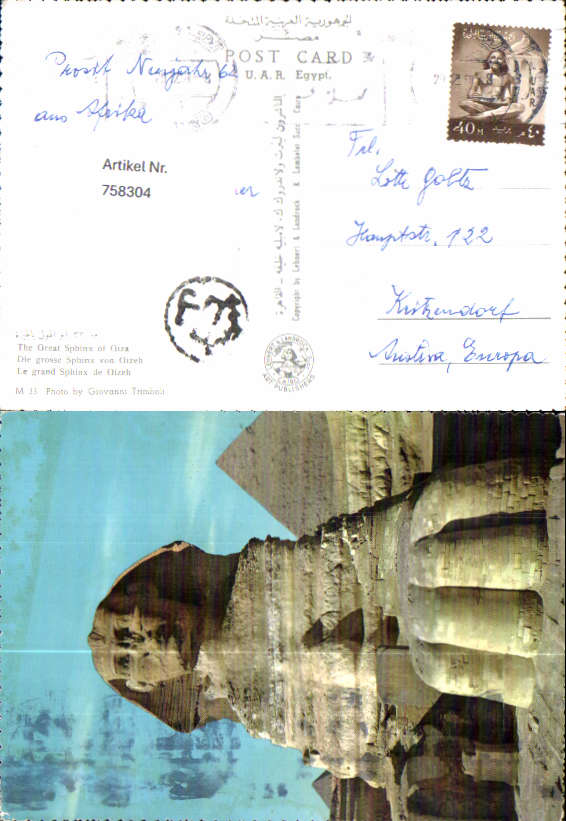 الجمهورية العربية المتحدة
مصر
POST CARD
U. A. R. Egypt.
Prosit Neujahr 62
aus Afrika
Artikel Nr.
758304
40 M ٤٠
Frl.
Hauptstr. 122
Kritzendorf
Austria, Europa
Copyright by Lehnert & Landrock K. Lambelet Succ. Cairo
The Great Sphinx of Giza
Die grosse Sphinx von Gizeh
Le grand Sphinx de Gizeh
M 33 Photo by Giovanni Trimboli